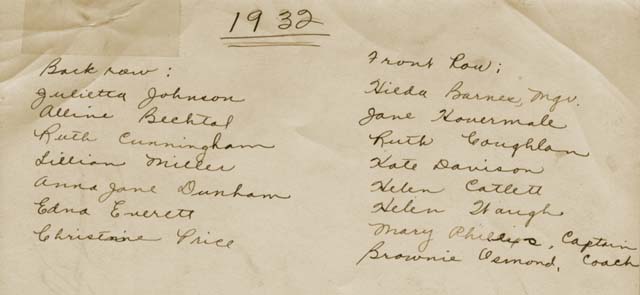 1932
Back row:
Julietta Johnson
Alline Bechtal
Ruth Cunningham
Lillian Miller
Anna Jane Dunham
Edna Everett
Christine Price
Front Row;
Hilda Barnes, Mgr.
Jane Hovermale
Ruth Coughlan
Kate Davison
Helen Catlett
Helen Waugh
Mary Phillips, Captain
Brownie Osmond, Coach